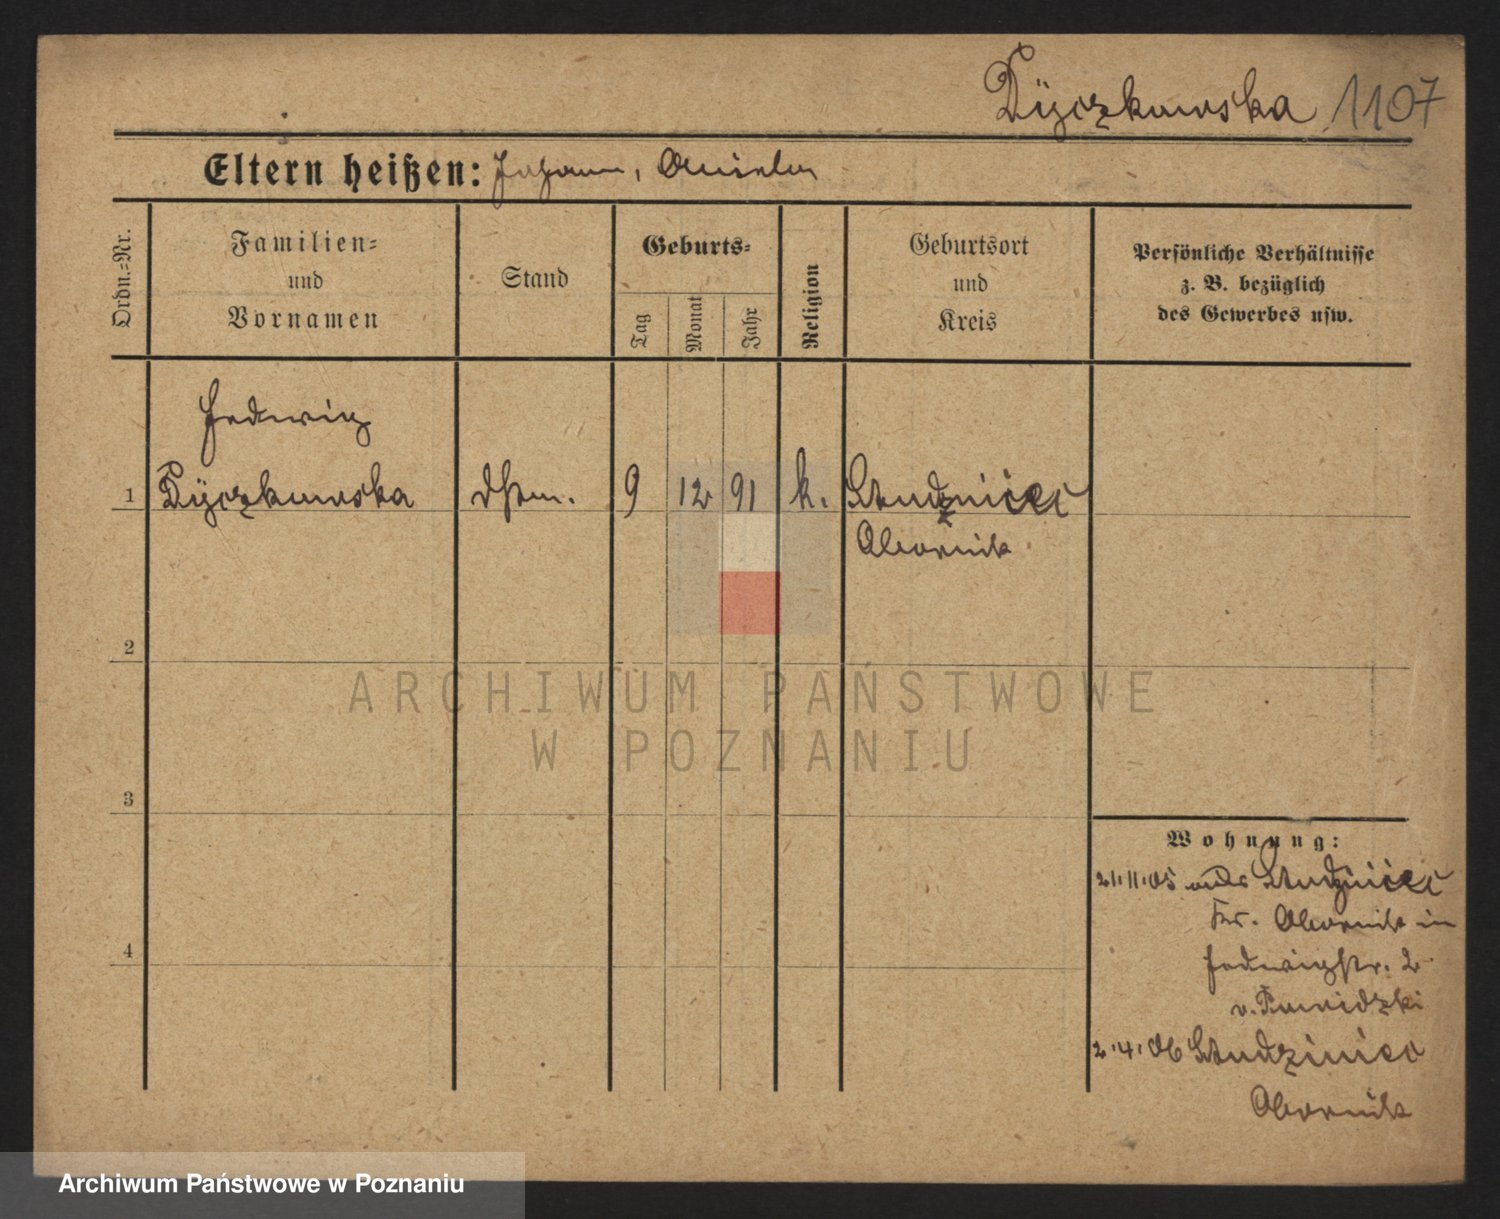 Dÿczkowska 1107
Eltern heißen: Johann, Aniela
Ordn.-Nr.
Familien-
und
Vornamen
Stand
Geburts-
Tag
Monat
Jahr
Religion
Geburtsort
und
Kreis
Persönliche Verhältnisse
z. B. bezüglich
des Gewerbes usw.
Hedwig
1 Dÿczkowska dstm. 9 12 91 k. Studzniec
Obornik
2
ARCHIWUM PAŃSTWOWE
W POZNANIU
3
Wohnung:
21.11.05 aus Studziniec
Kr. Obornik in
Hedwigstr. 2
v.
4
2.4.06 Studziniec
Obornik
Archiwum Państwowe w Poznaniu